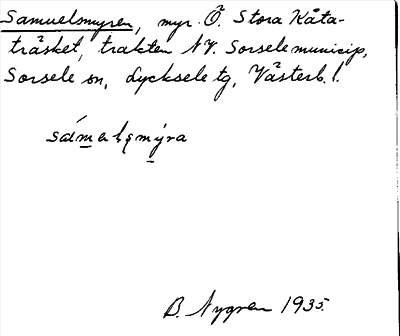 Samuelsmyren, myr. Ö. Stora Kåta-
träsket, trakten NV. Sorsele municip,
Sorsele sn, Lycksele tg, Västerb. l.
B. Nygren 1935.